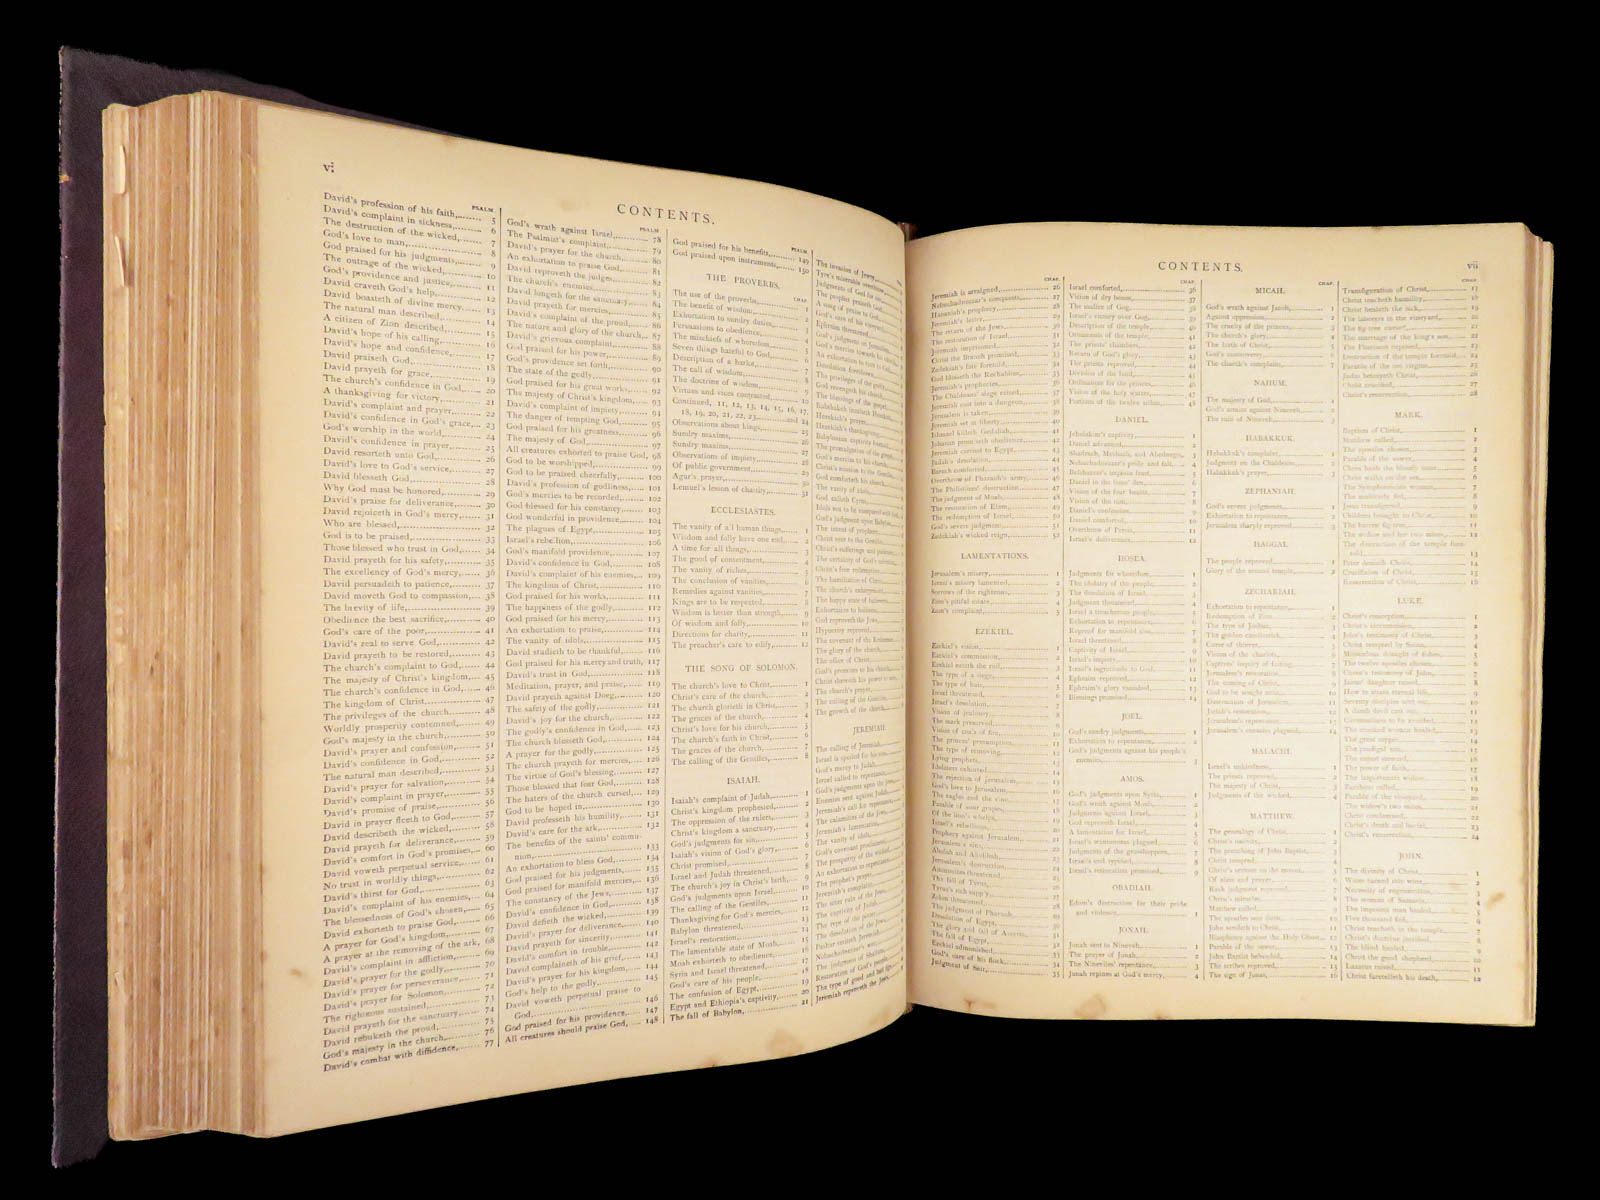 vi
CONTENTS.
PSALM.
David's profession of his faith, 5
David's complaint in sickness, 6
The destruction of the wicked, 7
God's love to man, 8
God praised for his judgments, 9
The outrage of the wicked, 10
God's providence and justice, 11
David craveth God's help, 12
David boasteth of divine mercy, 13
The natural man described, 14
A citizen of Zion described, 15
David's hope of his calling, 16
David's hope and confidence, 17
David praiseth God, 18
David prayeth for grace, 19
The church's confidence in God, 20
A thanksgiving for victory, 21
David's complaint and prayer, 22
David's confidence in God's grace, 23
God's worship in the world, 24
David's confidence in prayer, 25
David resorteth unto God, 26
David's love to God's service, 27
David blesseth God, 28
Why God must be honored, 29
David's praise for deliverance, 30
David rejoiceth in God's mercy, 31
Who are blessed, 32
God is to be praised, 33
Those blessed who trust in God, 34
David prayeth for his safety, 35
The excellency of God's mercy, 36
David persuadeth to patience, 37
David moveth God to compassion, 38
The brevity of life, 39
Obedience the best sacrifice, 40
God's care of the poor, 41
David's zeal to serve God, 42
David prayeth to be restored, 43
The church's complaint to God, 44
The majesty of Christ's kingdom, 45
The church's confidence in God, 46
The kingdom of Christ, 47
The privileges of the church, 48
Worldly prosperity contemned, 49
God's majesty in the church, 50
David's prayer and confession, 51
David's confidence in God, 52
The natural man described, 53
David's prayer for salvation, 54
David's complaint in prayer, 55
David's promise of praise, 56
David in prayer fleeth to God, 57
David describeth the wicked, 58
David prayeth for deliverance, 59
David's comfort in God's promises, 60
David voweth perpetual service, 61
No trust in worldly things, 62
David's thirst for God, 63
David's complaint of his enemies, 64
The blessedness of God's chosen, 65
David exhorteth to praise God, 66
A prayer for God's kingdom, 67
A prayer at the removing of the ark, 68
David's complaint in affliction, 69
David's prayer for the godly, 70
David's prayer for perseverance, 71
David's prayer for Solomon, 72
The righteous sustained, 73
David prayeth for the sanctuary, 74
David rebuketh the proud, 75
God's majesty in the church, 76
David's combat with diffidence, 77
PSALM
God's wrath against Israel, 78
The Psalmist's complaint, 79
David's prayer for the church, 80
An exhortation to praise God, 81
David reproveth the judges, 82
The church's enemies, 83
David longeth for the sanctuary, 84
David prayeth for mercies, 85
David's complaint of the proud, 86
The nature and glory of the church, 87
David's grievous complaint, 88
God praised for his power, 89
God's providence set forth, 90
The state of the godly, 91
God praised for his great works, 92
The majesty of Christ's kingdom, 93
David's complaint of impiety, 94
The danger of tempting God, 95
God praised for his greatness, 96
The majesty of God, 97
All creatures exhorted to praise God, 98
God to be worshipped, 99
God to be praised cheerfully, 100
David's profession of godliness, 101
God's mercies to be recorded, 102
God blessed for his constancy, 103
God wonderful in providence, 104
The plagues of Egypt, 105
Israel's rebellion, 106
God's manifold providence, 107
David's confidence in God, 108
David's complaint of his enemies, 109
The kingdom of Christ, 110
God praised for his works, 111
The happiness of the godly, 112
God praised for his mercy, 113
An exhortation to praise, 114
The vanity of idols, 115
David studieth to be thankful, 116
God praised for his mercy and truth, 117
David's trust in God, 118
Meditation, prayer, and praise, 119
David prayeth against Doeg, 120
The safety of the godly, 121
David's joy for the church, 122
The godly's confidence in God, 123
The church blesseth God, 124
A prayer for the godly, 125
The church prayeth for mercies, 126
The virtue of God's blessing, 127
Those blessed that fear God, 128
The haters of the church cursed, 129
God to be hoped in, 130
David professeth his humility, 131
David's care for the ark, 132
The benefits of the saints' commu-
nion, 133
An exhortation to bless God, 134
God praised for his judgments, 135
God praised for manifold mercies, 136
The constancy of the Jews, 137
David's confidence in God, 138
David defieth the wicked, 139
David's prayer for deliverance, 140
David prayeth for sincerity, 141
David's comfort in trouble, 142
David complaineth of his grief, 143
David's prayer for his kingdom, 144
God's help to the godly, 145
David voweth perpetual praise to
God, 146
God praised for his providence, 147
All creatures should praise God, 148
PSALM
God praised for his benefits, 149
God praised upon instruments, 150
THE PROVERBS.
CHAP.
The use of the proverbs, 1
The benefit of wisdom, 2
Exhortation to sundry duties, 3
Persuasions to obedience, 4
The mischiefs of whoredom, 5
Seven things hateful to God, 6
Description of a harlot, 7
The call of wisdom, 8
The doctrine of wisdom, 9
Virtues and vices contrasted, 10
Continued, 11, 12, 13, 14, 15, 16, 17,
18, 19, 20, 21, 22, 23, and 24
Observations about kings, 25
Sundry maxims, 26
Sundry maxims, 27
Observations of impiety, 28
Of public government, 29
Agur's prayer, 30
Lemuel's lesson of chastity, 31
ECCLESIASTES.
The vanity of all human things, 1
Wisdom and folly have one end, 2
A time for all things, 3
The good of contentment, 4
The vanity of riches, 5
The conclusion of vanities, 6
Remedies against vanities, 7
Kings are to be respected, 8
Wisdom is better than strength, 9
Of wisdom and folly, 10
Directions for charity, 11
The preacher's care to edify, 12
THE SONG OF SOLOMON.
The church's love to Christ, 1
Christ's care of the church, 2
The church glorieth in Christ, 3
The graces of the church, 4
Christ's love for his church, 5
The church's faith in Christ, 6
The graces of the church, 7
The calling of the Gentiles, 8
ISAIAH.
Isaiah's complaint of Judah, 1
Christ's kingdom prophesied, 2
The oppression of the rulers, 3
Christ's kingdom a sanctuary, 4
God's judgments for sin, 5
Isaiah's vision of God's glory, 6
Christ promised, 7
Israel and Judah threatened, 8
The church's joy in Christ's birth, 9
God's judgments upon Israel, 10
The calling of the Gentiles, 11
Thanksgiving for God's mercies, 12
Babylon threatened, 13
Israel's restoration, 14
The lamentable state of Moab, 15
Moab exhorteth to obedience, 16
Syria and Israel threatened, 17
God's care of his people, 18
The confusion of Egypt, 19
Egypt and Ethiopia's captivity, 20
The fall of Babylon, 21
The invasion of Jewry,
Tyre's miserable overthrow,
Judgments of God for sin,
The prophet praiseth God,
A song of praise to God,
God's care of his vineyard,
Ephraim threatened,
God's judgment on Jerusalem,
God's mercies towards his church,
An exhortation to trust in God,
Desolation foreshown,
The privileges of the godly,
God revengeth his church,
The blessings of the gospel,
Rabshakeh insulteth Hezekiah,
Hezekiah's prayer,
Hezekiah's thanksgiving,
Babylonian captivity foretold,
The promulgation of the gospel,
God's mercies to his church,
Christ's mission to the Gentiles,
God comforteth his church,
The vanity of idols,
God calleth Cyrus,
Idols not to be compared with God,
God's judgment upon Babylon,
The intent of prophecy,
Christ sent to the Gentiles,
Christ's sufferings and patience,
The certainty of God's salvation,
Christ's free redemption,
The humiliation of Christ,
The church's enlargement,
The happy state of believers,
Exhortation to holiness,
God reproveth the Jews,
Hypocrisy reproved,
The covenant of the Redeemer,
The glory of the church,
The office of Christ,
God's promises to his church,
Christ sheweth his power to save,
The church's prayer,
The calling of the Gentiles,
The growth of the church,
JEREMIAH.
The calling of Jeremiah,
Israel is spoiled for his sins,
God's mercy to Judah,
Israel called to repentance,
God's judgments upon the Jews,
Enemies sent against Judah,
Jeremiah's call for repentance,
The calamities of the Jews,
Jeremiah's lamentation,
The vanity of idols,
God's covenant proclaimed,
The prosperity of the wicked,
An exhortation to repentance,
The prophet's prayer,
Jeremiah's complaint,
The utter ruin of the Jews,
The captivity of Judah,
The type of the potter,
The desolation of the Jews,
Pashur smiteth Jeremiah,
Nebuchadnezzar's war,
The judgment of Shallum,
Restoration of God's people,
The type of good and bad figs,
Jeremiah reproveth the Jews,
CONTENTS.
vii
CHAP.
Jeremiah is arraigned, 26
Nebuchadnezzar's conquests, 27
Hananiah's prophecy, 28
Jeremiah's letter, 29
The return of the Jews, 30
The restoration of Israel, 31
Jeremiah imprisoned, 32
Christ the Branch promised, 33
Zedekiah's fate foretold, 34
God blesseth the Rechabites, 35
Jeremiah's prophecies, 36
The Chaldeans' siege raised, 37
Jeremiah cast into a dungeon, 38
Jerusalem is taken, 39
Jeremiah set at liberty, 40
Ishmael killeth Gedaliah, 41
Johanan promiseth obedience, 42
Jeremiah carried to Egypt, 43
Judah's desolation, 44
Baruch comforted, 45
Overthrow of Pharaoh's army, 46
The Philistines' destruction, 47
The judgment of Moab, 48
The restoration of Elam, 49
The redemption of Israel, 50
God's severe judgment, 51
Zedekiah's wicked reign, 52
LAMENTATIONS.
Jerusalem's misery, 1
Israel's misery lamented, 2
Sorrows of the righteous, 3
Zion's pitiful estate, 4
Zion's complaint, 5
EZEKIEL.
Ezekiel's vision, 1
Ezekiel's commission, 2
Ezekiel eateth the roll, 3
The type of a siege, 4
The type of hair, 5
Israel threatened, 6
Israel's desolation, 7
Vision of jealousy, 8
The mark preserved, 9
Vision of coals of fire, 10
The princes' presumption, 11
The type of removing, 12
Lying prophets, 13
Idolaters exhorted, 14
The rejection of Jerusalem, 15
God's love to Jerusalem, 16
The eagles and the vine, 17
Parable of sour grapes, 18
Of the lion's whelps, 19
Israel's rebellions, 20
Prophecy against Jerusalem, 21
Jerusalem's sins, 22
Aholah and Aholibah, 23
Jerusalem's destruction, 24
Ammonites threatened, 25
The fall of Tyrus, 26
Tyrus's rich supply, 27
Zidon threatened, 28
The judgment of Pharaoh, 29
Desolation of Egypt, 30
The glory and fall of Assyria, 31
The fall of Egypt, 32
Ezekiel admonished, 33
God's care of his flock, 34
Judgment of Seir, 35
CHAP.
Israel comforted, 36
Vision of dry bones, 37
The malice of Gog, 38
Israel's victory over Gog, 39
Description of the temple, 40
Ornaments of the temple, 41
The priests' chambers, 42
Return of God's glory, 43
The priests reproved, 44
Division of the land, 45
Ordinances for the princes, 46
Vision of the holy waters, 47
Portions of the twelve tribes, 48
DANIEL.
Jehoiakim's captivity, 1
Daniel advanced, 2
Shadrach, Meshach, and Abednego, 3
Nebuchadnezzar's pride and fall, 4
Belshazzar's impious feast, 5
Daniel in the lions' den, 6
Vision of the four beasts, 7
Vision of the ram, 8
Daniel's confession, 9
Daniel comforted, 10
Overthrow of Persia, 11
Israel's deliverance, 12
HOSEA.
Judgments for whoredom, 1
The idolatry of the people, 2
The desolation of Israel, 3
Judgment threatened, 4
Israel a treacherous people, 5
Exhortation to repentance, 6
Reproof for manifold sins, 7
Israel threatened, 8
Captivity of Israel, 9
Israel's impiety, 10
Israel's ingratitude to God, 11
Ephraim reproved, 12
Ephraim's glory vanished, 13
Blessings promised, 14
JOEL.
God's sundry judgments, 1
Exhortation to repentance, 2
God's judgments against his people's
enemies, 3
AMOS.
God's judgments upon Syria, 1
God's wrath against Moab, 2
Judgments against Israel, 3
God reproveth Israel, 4
A lamentation for Israel, 5
Israel's wantonness plagued, 6
Judgments of the grasshoppers, 7
Israel's end typified, 8
Israel's restoration promised, 9
OBADIAH.
Edom's destruction for their pride
and violence, 1
JONAH.
Jonah sent to Nineveh, 1
The prayer of Jonah, 2
The Ninevites' repentance, 3
Jonah repines at God's mercy, 4
CHAP.
MICAH.
God's wrath against Jacob, 1
Against oppression, 2
The cruelty of the princes, 3
The church's glory, 4
The birth of Christ, 5
God's controversy, 6
The church's complaint, 7
NAHUM.
The majesty of God, 1
God's armies against Nineveh, 2
The ruin of Nineveh, 3
HABAKKUK.
Habakkuk's complaint, 1
Judgment on the Chaldeans, 2
Habakkuk's prayer, 3
ZEPHANIAH.
God's severe judgments, 1
Exhortation to repentance, 2
Jerusalem sharply reproved, 3
HAGGAI.
The people reproved, 1
Glory of the second temple, 2
ZECHARIAH.
Exhortation to repentance, 1
Redemption of Zion, 2
The type of Joshua, 3
The golden candlestick, 4
Curse of thieves, 5
Vision of the chariots, 6
Captives' inquiry of fasting, 7
Jerusalem's restoration, 8
The coming of Christ, 9
God to be sought unto, 10
Destruction of Jerusalem, 11
Judah's restoration, 12
Jerusalem's repentance, 13
Jerusalem's enemies plagued, 14
MALACHI.
Israel's unkindness, 1
The priests reproved, 2
The majesty of Christ, 3
Judgments of the wicked, 4
MATTHEW.
The genealogy of Christ, 1
Christ's nativity, 2
The preaching of John Baptist, 3
Christ tempted, 4
Christ's sermon on the mount, 5
Of alms and prayer, 6
Rash judgment reproved, 7
Christ's miracles, 8
Matthew called, 9
The apostles sent forth, 10
John sendeth to Christ, 11
Blasphemy against the Holy Ghost, 12
Parable of the sower, 13
John Baptist beheaded, 14
The scribes reproved, 15
The sign of Jonas, 16
CHAP.
Transfiguration of Christ, 17
Christ teacheth humility, 18
Christ healeth the sick, 19
The laborers in the vineyard, 20
The fig-tree cursed, 21
The marriage of the king's son, 22
The Pharisees exposed, 23
Destruction of the temple foretold, 24
Parable of the ten virgins, 25
Judas betrayeth Christ, 26
Christ crucified, 27
Christ's resurrection, 28
MARK.
Baptism of Christ, 1
Matthew called, 2
The apostles chosen, 3
Parable of the sower, 4
Christ heals the bloody issue, 5
Christ walks on the sea, 6
The Syrophenician woman, 7
The multitude fed, 8
Jesus transfigured, 9
Children brought to Christ, 10
The barren fig-tree, 11
The widow and her two mites, 12
The destruction of the temple fore-
told, 13
Peter denieth Christ, 14
Crucifixion of Christ, 15
Resurrection of Christ, 16
LUKE.
Christ's conception, 1
Christ's circumcision, 2
John's testimony of Christ, 3
Christ tempted by Satan, 4
Miraculous draught of fishes, 5
The twelve apostles chosen, 6
Christ's testimony of John, 7
Jairus' daughter raised, 8
How to attain eternal life, 9
Seventy disciples sent out, 10
A dumb devil cast out, 11
Covetousness to be avoided, 12
The crooked woman healed, 13
The great supper, 14
The prodigal son, 15
The unjust steward, 16
The power of faith, 17
The importunate widow, 18
Zaccheus called, 19
Parable of the vineyard, 20
The widow's two mites, 21
Christ condemned, 22
Christ's death and burial, 23
Christ's resurrection, 24
JOHN.
The divinity of Christ, 1
Water turned into wine, 2
Necessity of regeneration, 3
The woman of Samaria, 4
The impotent man healed, 5
Five thousand fed, 6
Christ teacheth in the temple, 7
Christ's doctrine justified, 8
The blind healed, 9
Christ the good shepherd, 10
Lazarus raised, 11
Christ foretelleth his death, 12